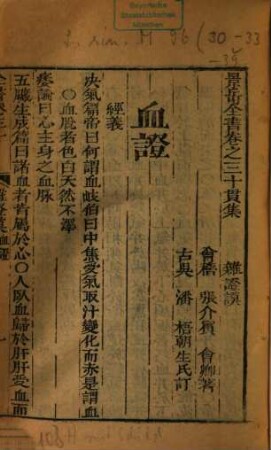 L. sin. M 96 (30-33
Bayerische
Staatsbibliothek
München
景岳全書卷之三十貫集
雜證謨
會稽 張介賓 會卿著
古吳 潘 梧朝生氏訂
血證
經義
決氣篇帝曰何謂血岐伯曰中焦受氣取汁變化而赤是謂血
○血脫者色白天然不澤
痿論曰心主身之血脉
五臟生成篇曰諸血者皆屬於心○人臥血歸於肝肝受血而